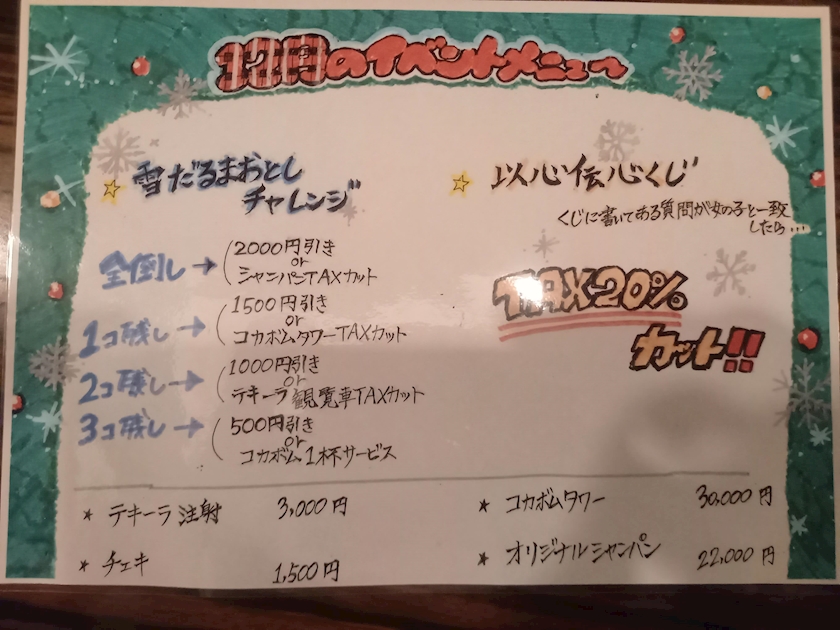 12月のイベントメニュー
雪だるまおとし
チャレンジ
全倒し→
2000円引き
or
シャンパンTAXカット
1コ残し→
1500円引き
or
コカボムタワーTAXカット
2コ残し→
1000円引き
or
テキーラ観覧車TAXカット
3コ残し→
500円引き
or
コカボム1杯サービス
以心伝心くじ
くじに書いてある質問が女の子と一致
したら...
TAX20%
カット!!
テキーラ注射 3,000円
チェキ 1,500円
コカボムタワー 30,000円
オリジナルシャンパン 22,000円